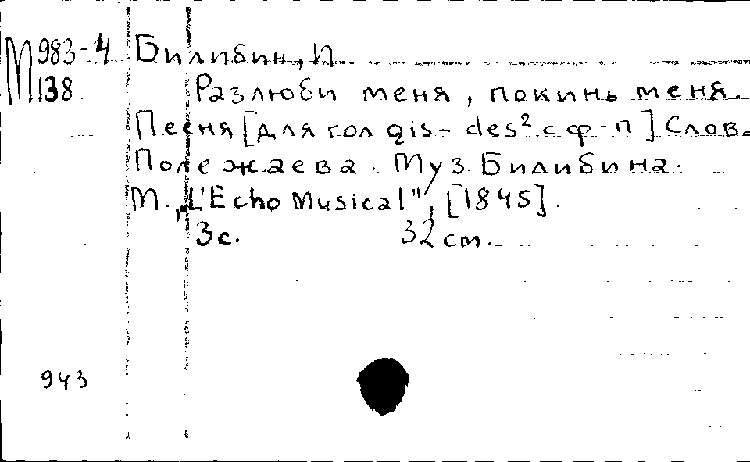 М 983-4 Билибин, И
138 Разлюби меня, покинь меня.
Песня [для гол gis-des² с ф-п] Слов.
Полежаева. Муз. Билибина.
М. „L'Echo Musical", [1845].
3с. 32 см.
943